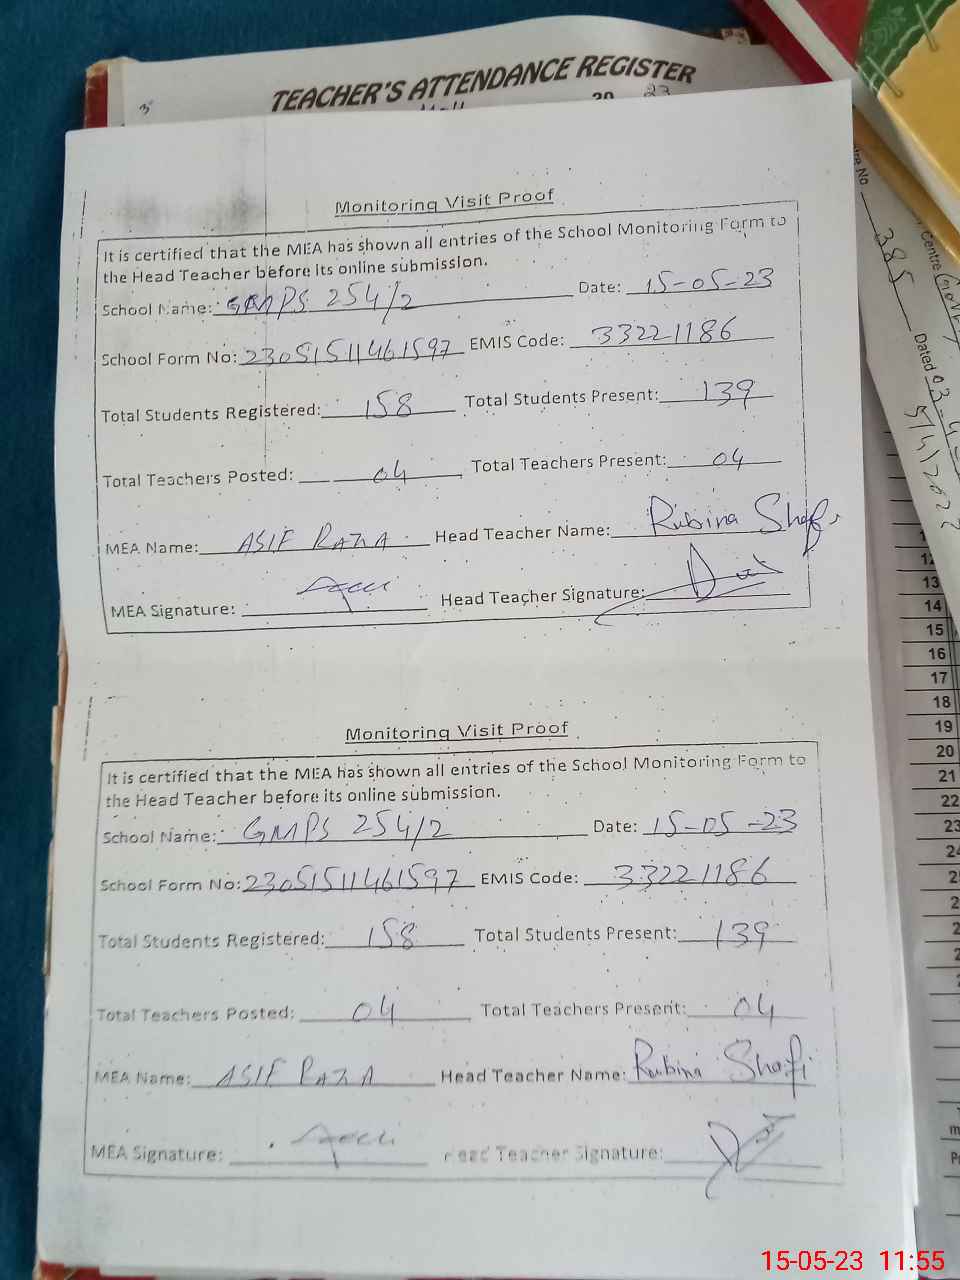 TEACHER'S ATTENDANCE REGISTER
20 23
Monitoring Visit Proof
It is certified that the MEA has shown all entries of the School Monitoring Form to
the Head Teacher before its online submission.
School Name: GMPS 254/2 Date: 15-05-23
School Form No: 23051511461597 EMIS Code: 33221186
Total Students Registered: 158 Total Students Present: 139
Total Teachers Posted: 04 Total Teachers Present: 04
MEA Name: ASIF RAZA Head Teacher Name: Rubina Shafi
MEA Signature: Head Teacher Signature:
Monitoring Visit Proof
It is certified that the MEA has shown all entries of the School Monitoring Form to
the Head Teacher before its online submission.
School Name: GMPS 254/2 Date: 15-05-23
School Form No: 23051511461597 EMIS Code: 33221186
Total Students Registered: 158 Total Students Present: 139
Total Teachers Posted: 04 Total Teachers Present: 04
MEA Name: ASIF RAZA Head Teacher Name: Rubina Shafi
MEA Signature: Head Teacher Signature:
No 385
Centre
Dated
13
14
15
16
17
18
19
20
21
22
23
15-05-23 11:55